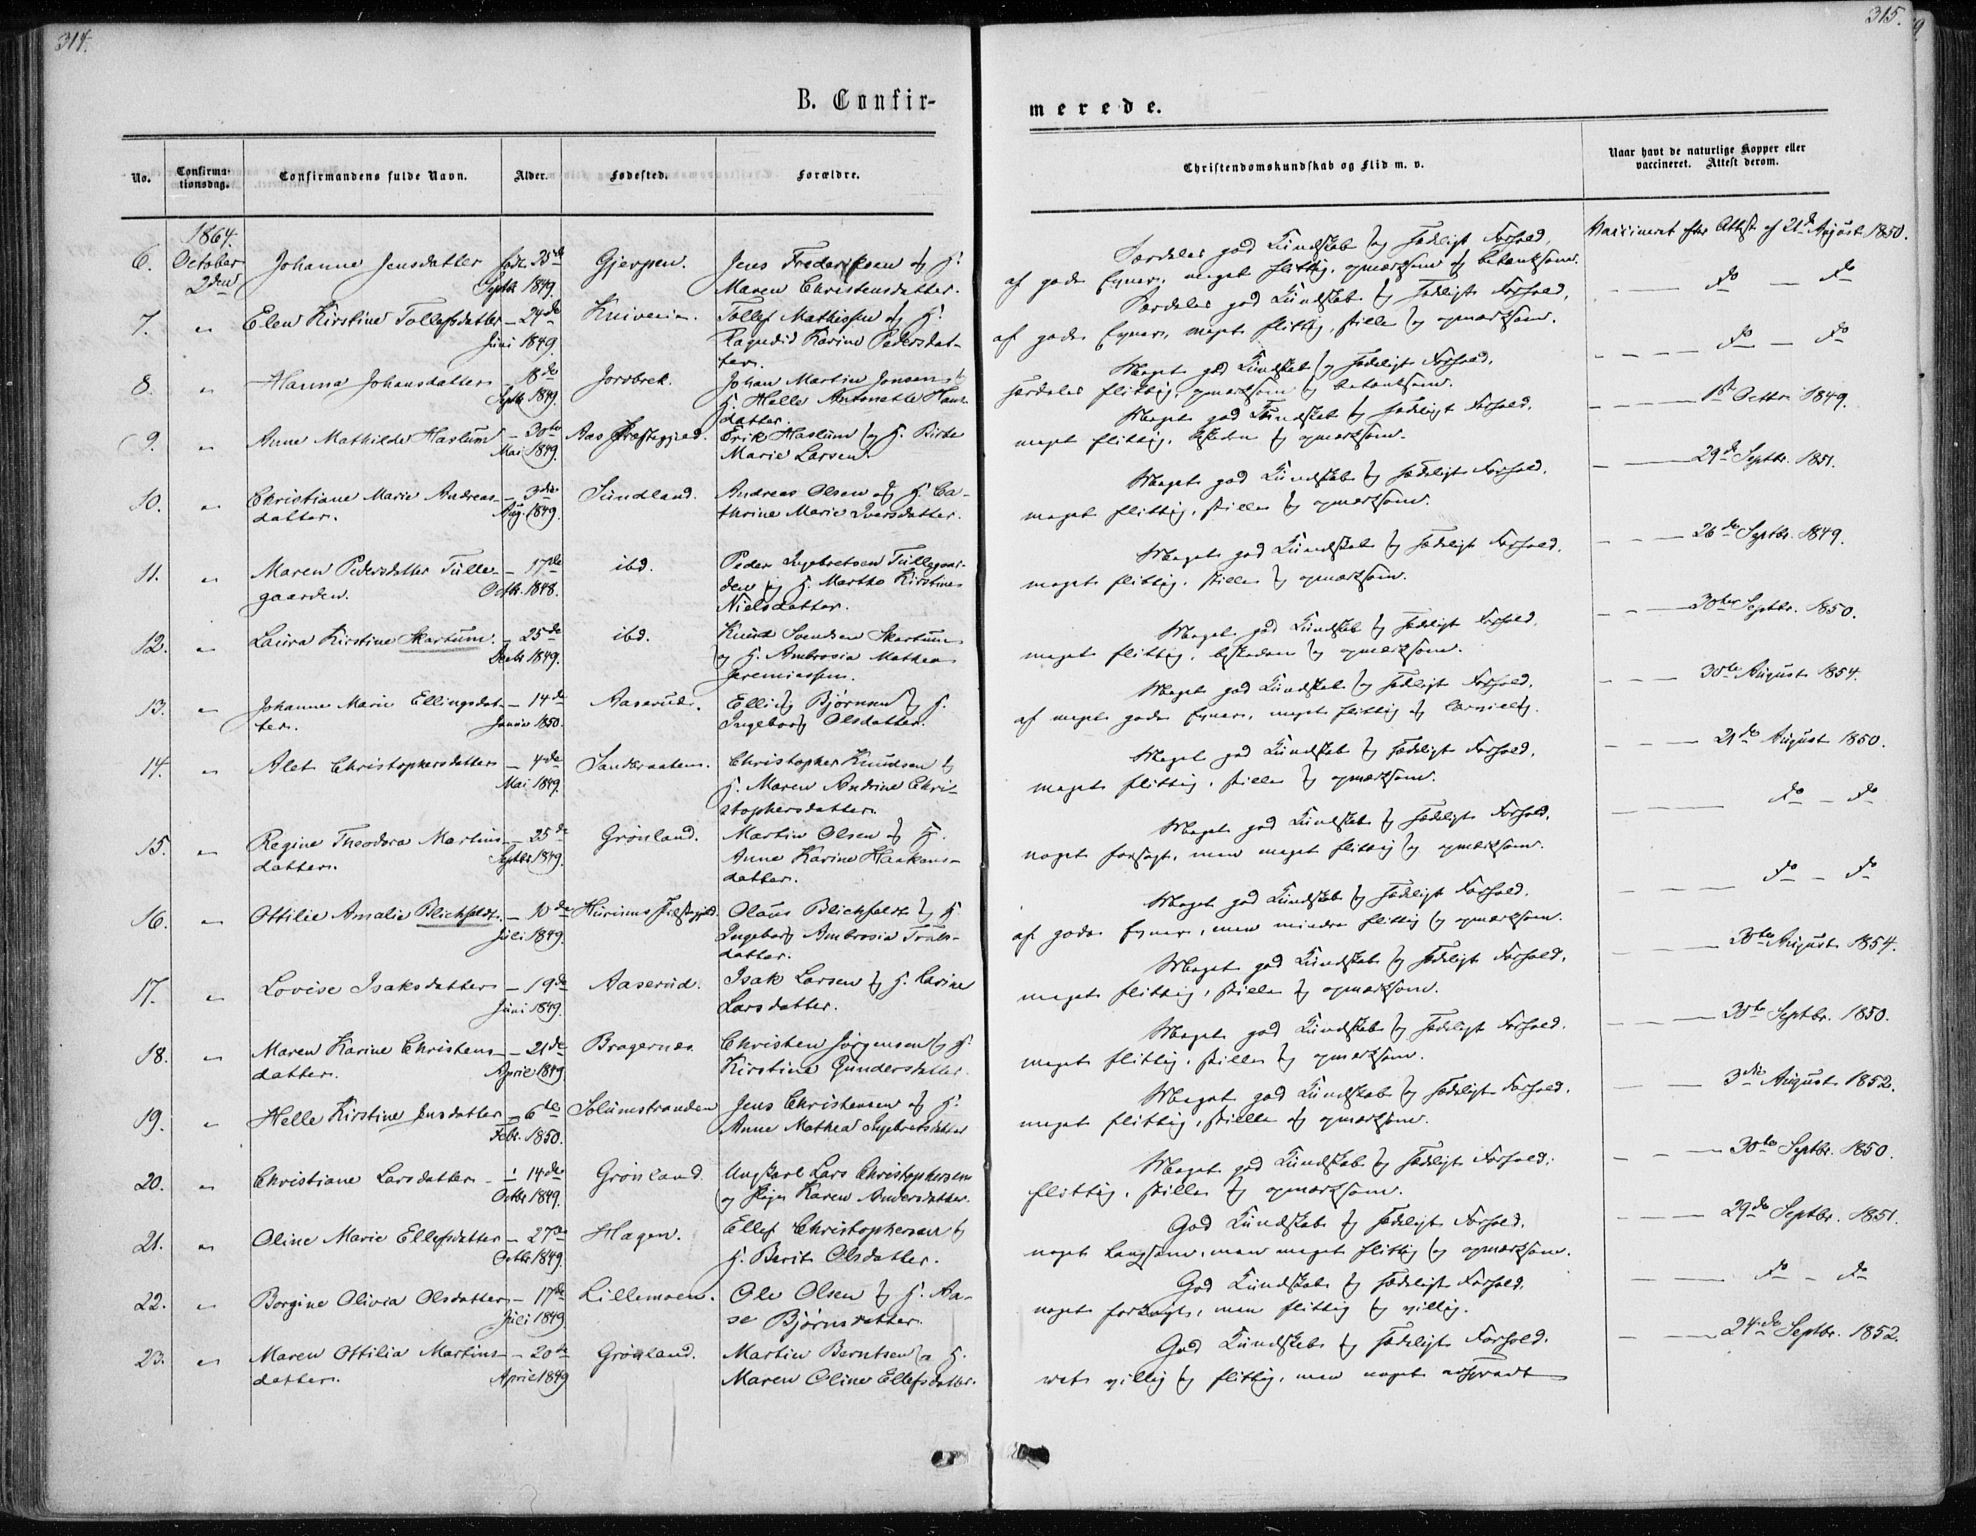 314.
315.
B. Confir-
merede.
No.
Confirma-
tionsdag.
Confirmandens fulde Navn.
Alder.
Fødested.
Forældre.
Christendomskundskab og Flid m. v.
Naar havt de naturlige Kopper eller
vaccineret. Attest derom.
1864.
6. October Johanne Jensdatter født 25de Gjerpen. Jens Frederiksen og H.
2den Septbr 1849. Maren Christensdatter.
Særdeles god Kundskab og sædeligt Forhold,
af gode Evner, meget flittig, opmærksom og betænksom.
Vaccineret efter Attest af 21de August 1850.
7. " Elen Kirstine Tollefsdatter – 24de Tollef Mathissen og H.
Juni 1849. Karine Pedersdat-
ter.
Særdeles god Kundskab og sædeligt Forhold,
af gode Evner, meget flittig, stille og opmærksom.
– – do – do
8. " Hanna Johansdatter 18de Johan Martin Jensen og
Septbr 1849. H. Helle Antonette Hans-
datter.
Meget god Kundskab og sædeligt Forhold,
særdeles flittig, opmærksom og betænksom.
– – – do – do
9. " Anne Mathilde Haslum – 30te Aas Præstegjeld. Erik Haslum og H. Birte
Mai 1849. Marie Larsen.
Meget god Kundskab og sædeligt Forhold,
meget flittig, beskeden og opmærksom.
– – – 1ste Octbr. 1849.
10. " Christiane Marie Andreas- – 3die Sundland. Andreas Olsen og H. Ca-
datter. Aug. 1849. thrine Marie Iversdatter.
Meget god Kundskab og sædeligt Forhold,
meget flittig, stille og opmærksom.
– – 29de Septbr. 1851.
11. " Maren Pedersdatter Tulle- – 17de ibd. Peder Ingebretsen Tullegaar-
gaarden. Octbr. 1848. den og H. Marthe Kirstine
Nielsdatter.
Meget god Kundskab og sædeligt Forhold,
meget flittig, stille og opmærksom.
– – – 26de Septbr. 1849.
12. " Laura Kirstine Skartum. – 25de ibd. Knud Svendsen Skartum
Decbr 1849. og H. Ambrosia Mathea
Jeremiassen.
Meget god Kundskab og sædeligt Forhold,
meget flittig, beskeden og opmærksom.
– – – 30te Septbr. 1850.
13. " Johanne Marie Ellingsdat- – 14de Aaserud. Elling Bjørnsen og H.
ter. Januar 1850. Ingeborg Olsdatter.
Meget god Kundskab og sædeligt Forhold,
af meget gode Evner, meget flittig og lærvillig.
– – – 30te August 1854.
14. " Alet Christophersdatter – 4de Christopher Knudsen og
Mai 1849. H. Maren Andrine Chri-
stophersdatter.
Meget god Kundskab og sædeligt Forhold,
meget flittig, stille og opmærksom.
– – – 21de August 1850.
15. " Regine Theodora Martins- – 25de Grønland. Martin Olsen og H.
datter. Septbr. 1849. Anne Karine Haakons-
datter.
Meget god Kundskab og sædeligt Forhold,
noget forsagt, men meget flittig og opmærksom.
– – – do – do
16. " Ottilie Amalie Blichfeldt. – 10de Hurums Præstegjeld. Olaus Blichfeldt og H.
Juli 1849. Ingeborg Ambrosia
datter.
Meget god Kundskab og sædeligt Forhold,
af gode Evner, men mindre flittig og opmærksom.
– – – do – do
17. " Lovise Isaksdatter – 19de Aaserud. Isak Larsen og H. Karine
Juni 1849. Larsdatter.
Meget god Kundskab og sædeligt Forhold,
meget flittig, stille og opmærksom.
– – 30te August 1854.
18. " Maren Karine Christens- – 21de Bragernæs. Christen Jørgensen og H.
datter. April 1849. Kirstine Gundersdatter.
Meget god Kundskab og sædeligt Forhold.
meget flittig, stille og opmærksom.
– – – 30te Septbr. 1850.
19. " Helle Kirstine Jensdatter – 6te Solumstranden Jens Christensen og H.
Febr. 1850. Anne Mathea Ingebretsdatter
Meget god Kundskab og sædeligt Forhold.
meget flittig, stille og opmærksom.
– – 3die August 1852.
20. " Christiane Larsdatter – 14de Grønland. Ungkarl Lars Christophersen
Octbr 1849. og Pigen Karen Andersdatter.
Meget god Kundskab og sædeligt Forhold;
flittig, stille og opmærksom.
– – 30te Septbr. 1850.
21. " Oline Marie Ellefsdatter – 27de Hagen. Ellef Christophersen og
Octbr 1849. H. Berit Olsdatter.
God Kundskab og sædeligt Forhold,
noget langsom, men meget flittig og opmærksom.
– – 29de Septbr. 1851.
22. " Borgine Olivia Olsdatter – 17de Lillemoen. Ole Olsen og H. Aa-
Juli 1849 se Bjørnsdatter.
God Kundskab og sædeligt Forhold,
noget forsagt, men flittig og villig.
– – do – do
23. " Maren Ottilia Martins- – 20de Grønland. Martin Berntsen og H.
datter. April 1849 Maren Oline Ellefsdatter.
God Kundskab og sædeligt Forhold.
ret villig og flittig, men noget adspredt
– – 24de Septbr. 1852.